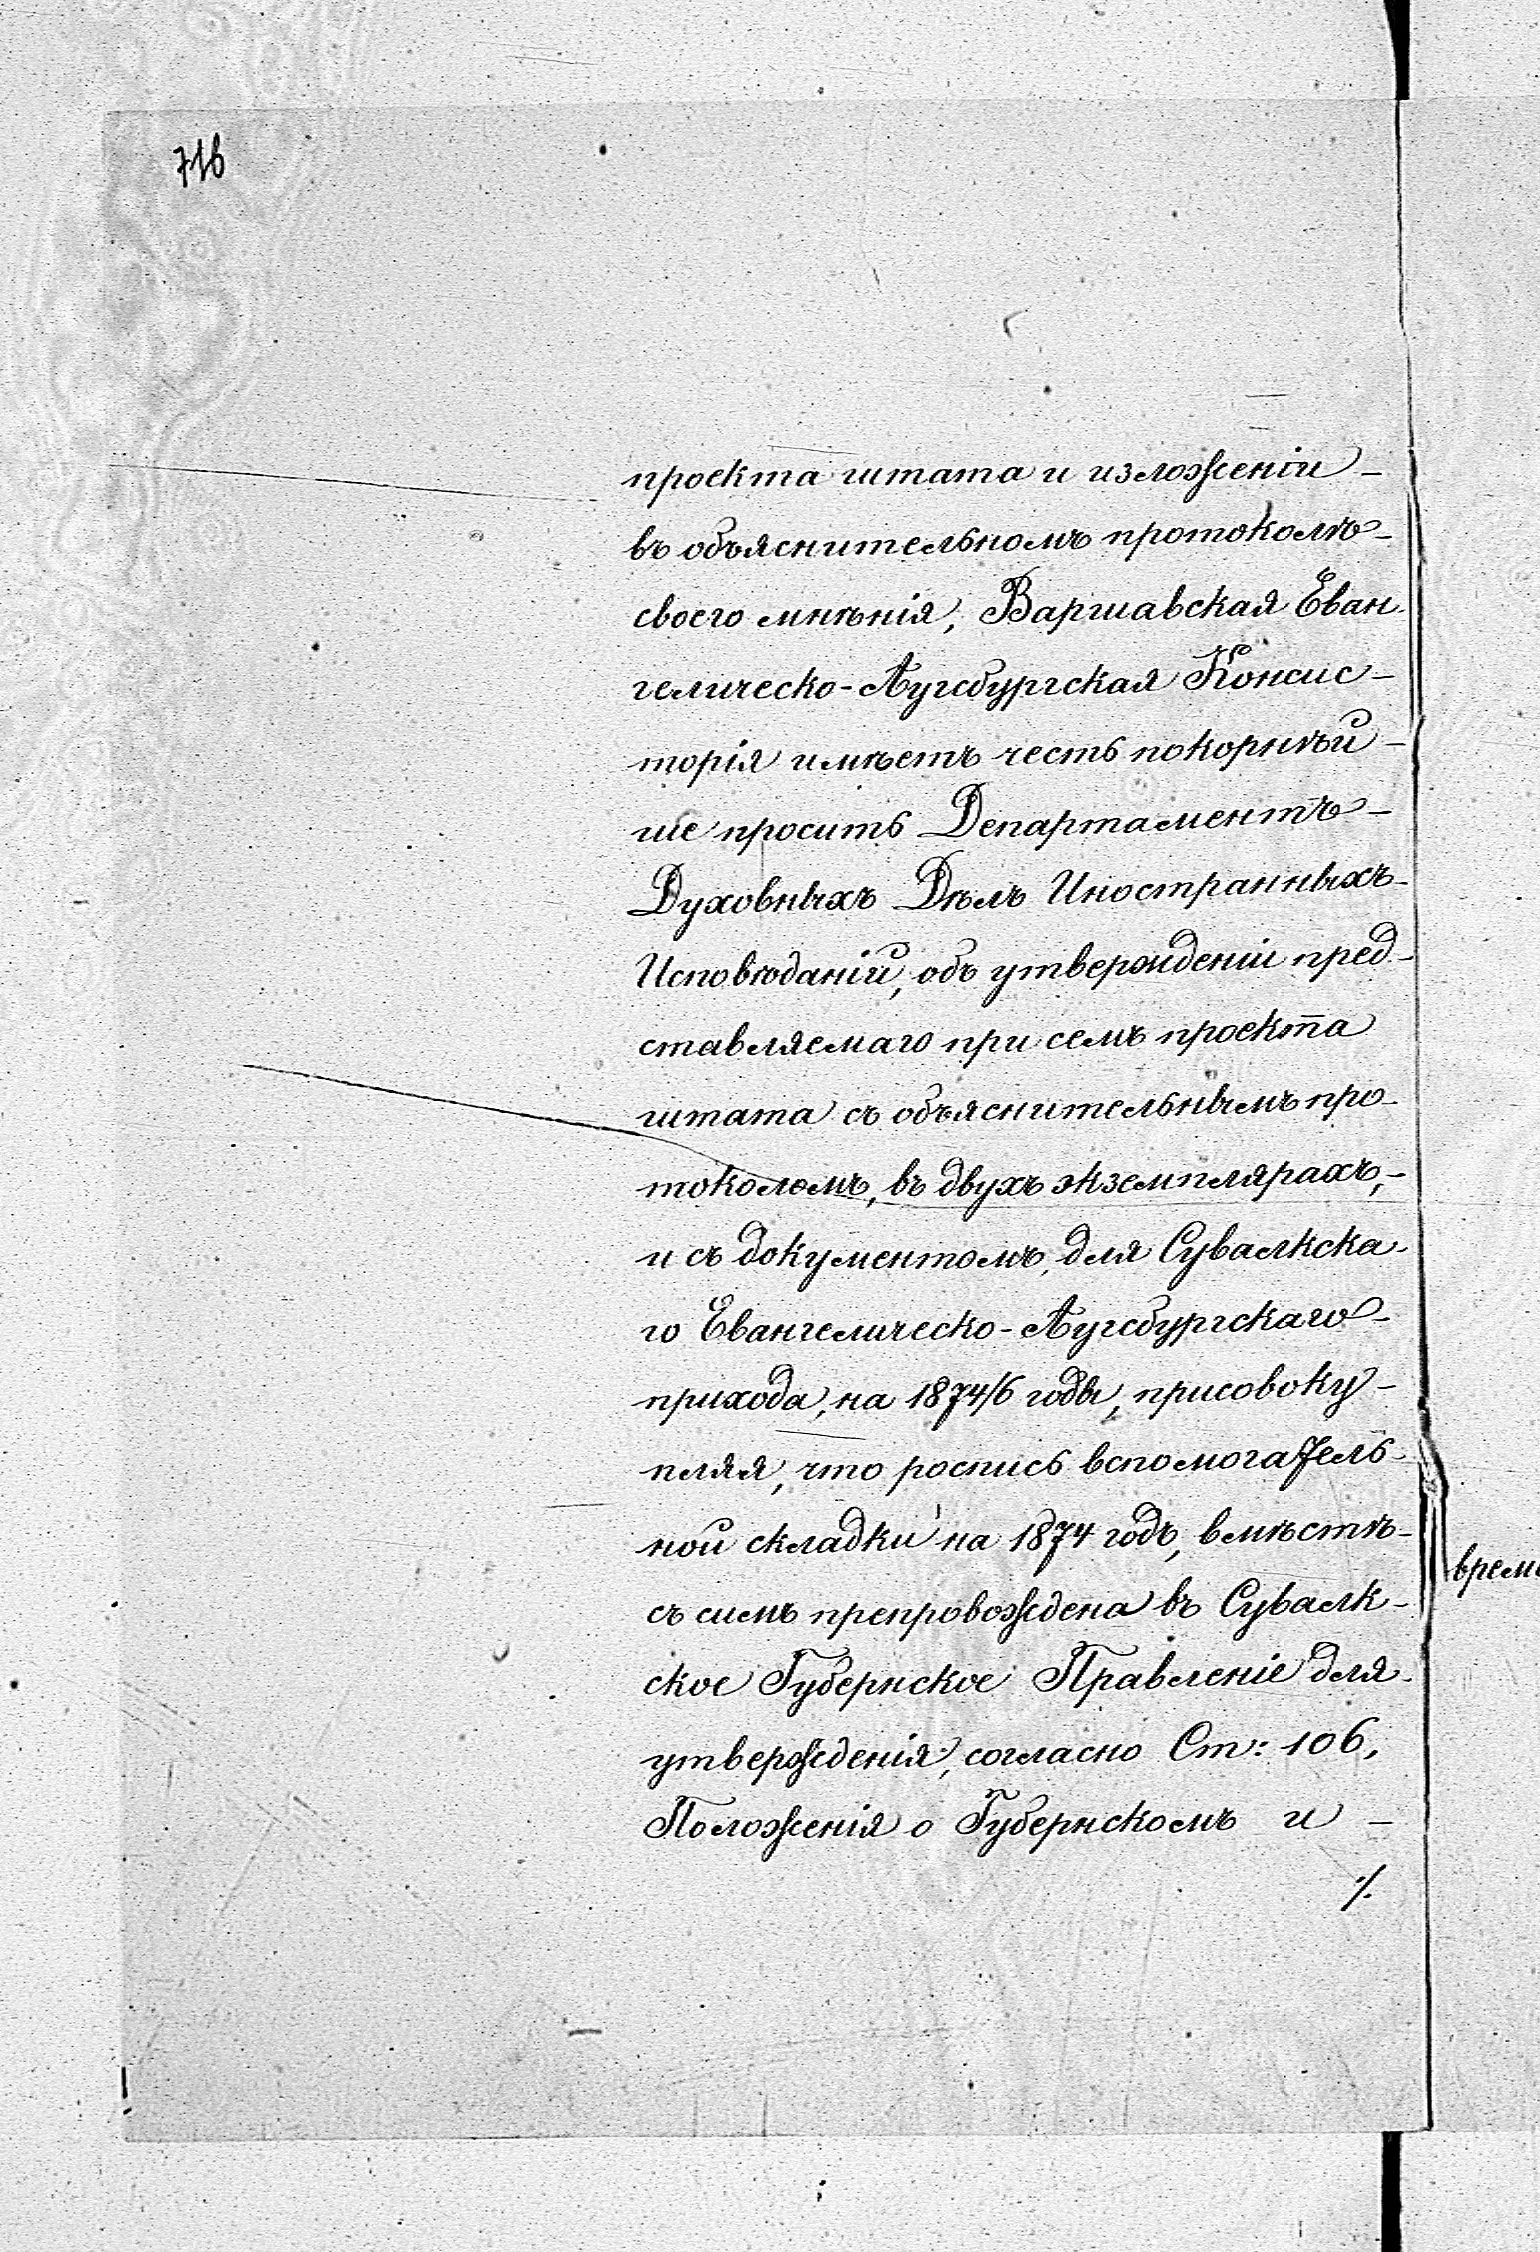 716
проекта штата и изложеніи -
въ объяснительномъ протоколѣ -
своего мнѣнія, Варшавская Еван-
гелическо-Аугсбургская Консис-
торія имѣетъ честь покорнѣй-
ше проситъ Департаментъ -
Духовныхъ Дѣлъ Иностранныхъ -
Исповѣданій, объ утвержденіи пред-
ставляемаго при семъ проекта
штата съ объяснительнымъ про-
токоломъ, въ двухъ экземплярахъ, -
и съ документомъ, для Сувалкска-
го Евангелическо-Аугсбургскаго -
прихода, на 1874/6 годы, присовоку-
пляя, что роспись вспомогатель-
ной складки на 1874 годъ, вмѣстѣ -
съ симъ препровождена въ Сувалк-
ское Губернское Правленіе для
утвержденія, согласно Ст: 106,
Положенія о Губернскомъ и -
./.